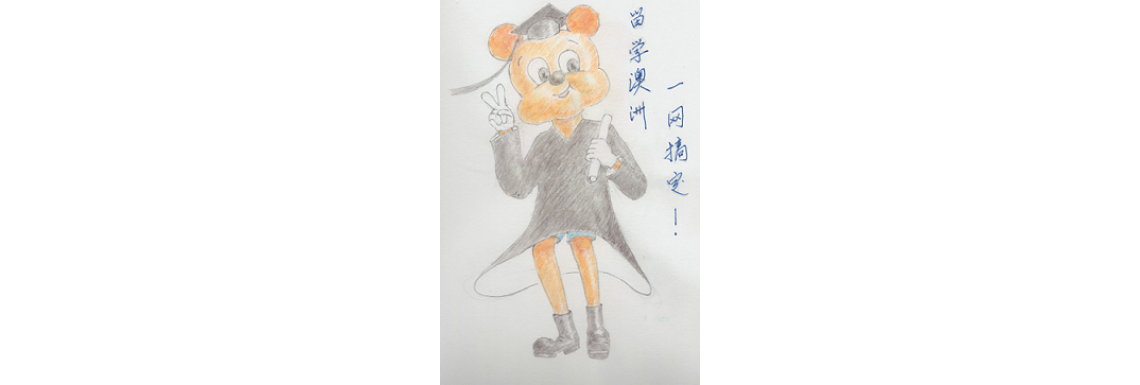 留学澳洲
一网搞定！